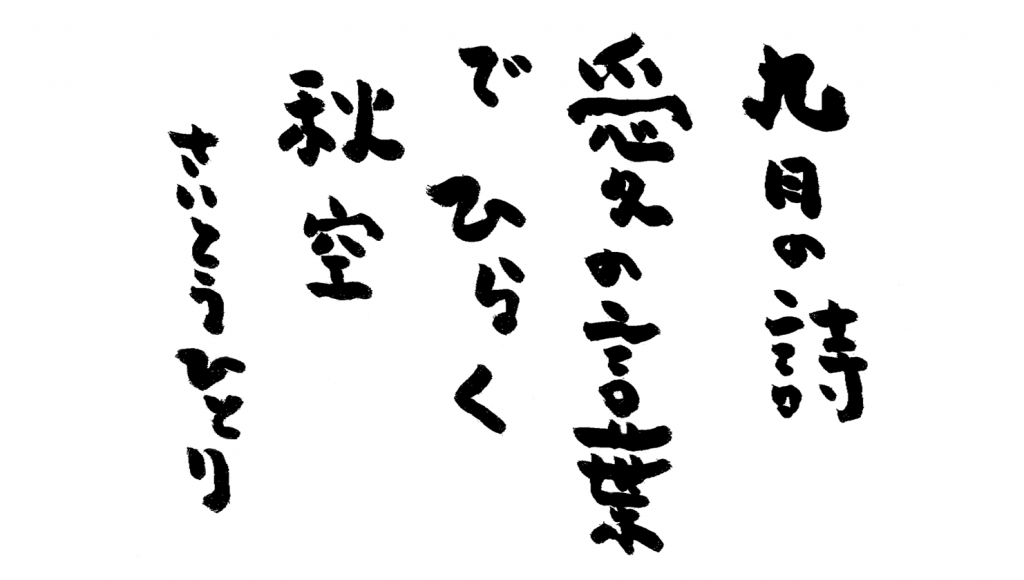 九月の詩
愛の言葉
でひらく
秋空
さいとうひとり